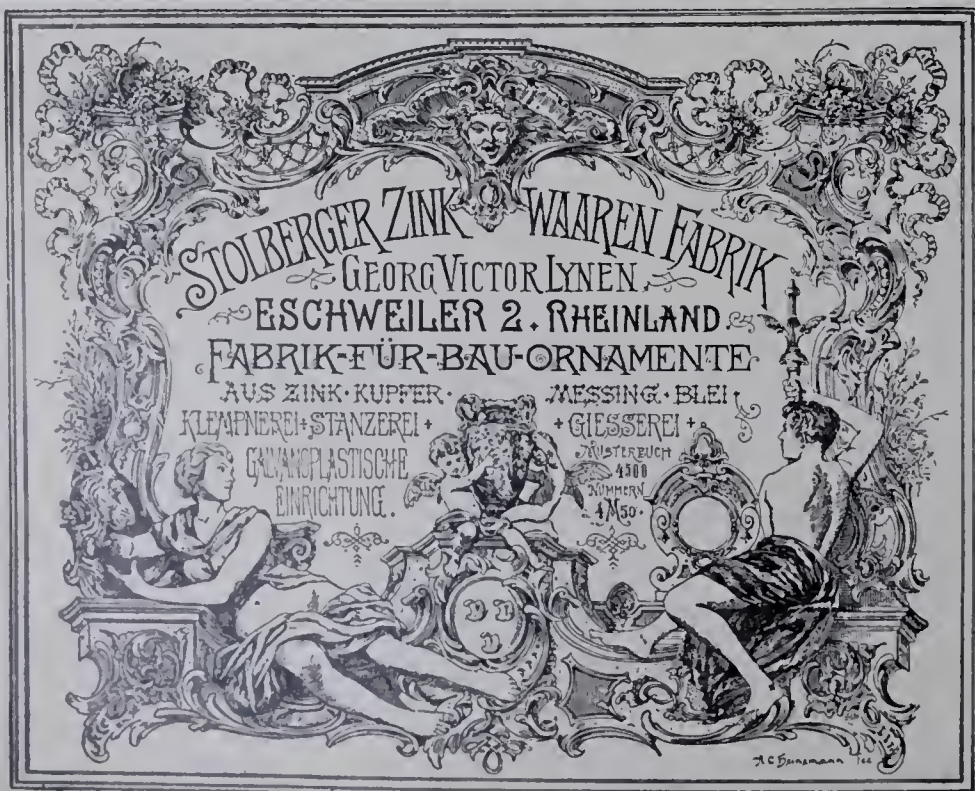 STOLBERGER ZINK WAAREN FABRIK
GEORG VICTOR LYNEN
ESCHWEILER 2. RHEINLAND
FABRIK-FÜR-BAU-ORNAMENTE
AUS ZINK · KUPFER · MESSING · BLEI
KLEMPNEREI + STANZEREI + + GIESSEREI +
GALVANOPLASTISCHE
EINRICHTUNG.
MUSTERBUCH
4500
NUMMERN
4M50
A C Heinemann